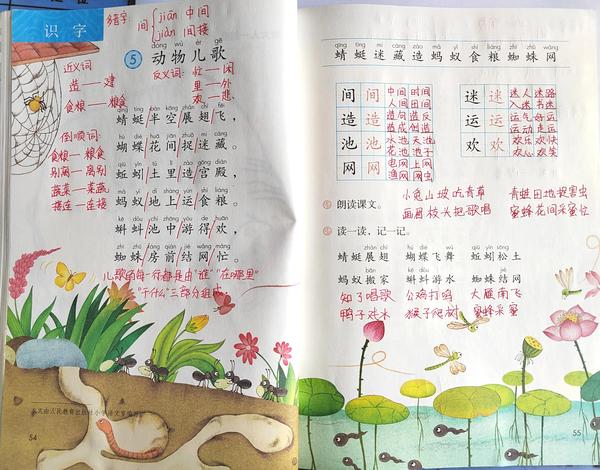 识 字
多音字 间 jiān 中间
jiàn 间接
dòng wù ér gē
5 动物儿歌
近义词
造——建
食粮——粮食
反义词:忙——闲
里——外
欢——悲
qīng tíng bàn kōng zhǎn chì fēi
蜻蜓半空展翅飞,
hú dié huā jiān zhuō mí cáng
蝴蝶花间捉迷藏。
qiū yǐn tǔ lǐ zào gōng diàn
蚯蚓土里造宫殿,
mǎ yǐ dì shàng yùn shí liáng
蚂蚁地上运食粮。
kē dǒu chí zhōng yóu de huān
蝌蚪池中游得欢,
zhī zhū fáng qián jié wǎng máng
蜘蛛房前结网忙。
倒顺词:
食粮——粮食
别离——离别
蔬菜——菜蔬
接连——连接
儿歌的每一行都是由“谁”“在哪里”
“干什么”三部分组成。
本文由人民教育出版社小学语文室编写
54
qīng tíng mí cáng zào mǎ yǐ shí liáng zhī zhū wǎng
蜻 蜓 迷 藏 造 蚂 蚁 食 粮 蜘 蛛 网
间 间 中间 时间
人间 田间
造 造 造句 造反
造成 创造
池 池 水池 天池
花池 池子
网 网 电网 上网
渔网 网虫
迷 迷 迷人 迷路
入迷 书迷
运 运 运气 好运
运动 走运
欢 欢 欢乐 欢快
欢心 欢笑
朗读课文。
小兔山坡吃青草 青蛙田地捉害虫
画眉枝头把歌唱 蜜蜂花间采蜜忙
读一读,记一记。
zhǎn chì hú dié wǔ qiū yǐn sōng
蜻蜓展翅 蝴蝶飞舞 蚯蚓松土
mǎ yǐ bān kē dǒu zhī zhū jié
蚂蚁搬家 蝌蚪游水 蜘蛛结网
知了唱歌 公鸡打鸣 大雁南飞
鸭子戏水 猴子爬树 蜜蜂采蜜
55